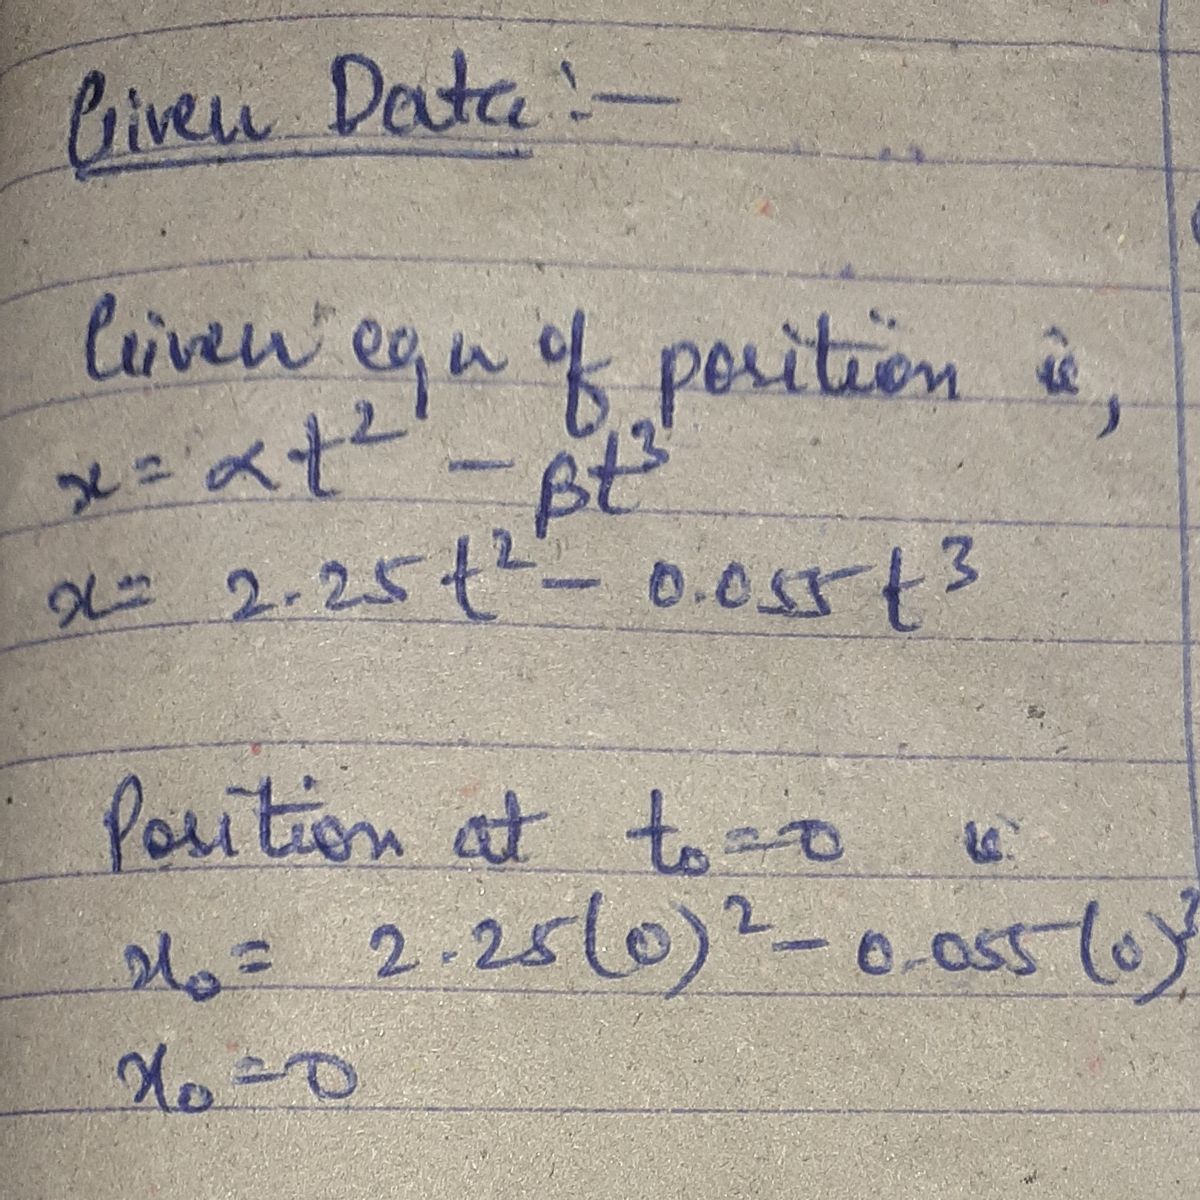 Given Data :—
Given eqn of position is,
x = αt² - βt³
x = 2.25t² - 0.055t³
Position at t₀ = 0 is
x₀ = 2.25(0)² - 0.055(0)³
x₀ = 0